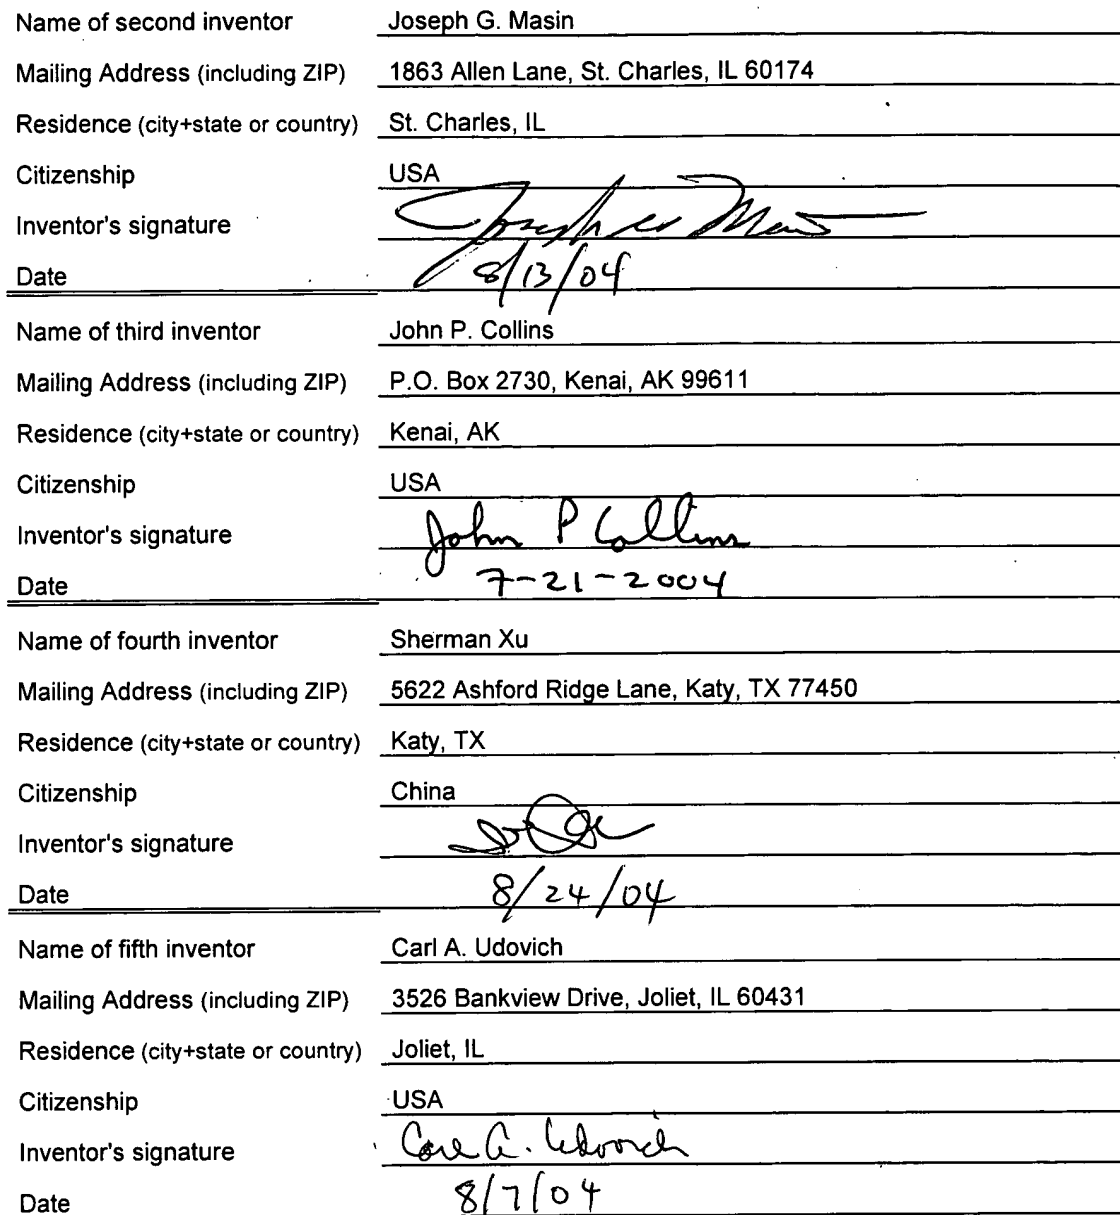 Name of second inventor Joseph G. Masin
Mailing Address (including ZIP) 1863 Allen Lane, St. Charles, IL 60174
Residence (city+state or country) St. Charles, IL
Citizenship USA
Inventor's signature
Date 8/13/04
Name of third inventor John P. Collins
Mailing Address (including ZIP) P.O. Box 2730, Kenai, AK 99611
Residence (city+state or country) Kenai, AK
Citizenship USA
Inventor's signature John P Collins
Date 7-21-2004
Name of fourth inventor Sherman Xu
Mailing Address (including ZIP) 5622 Ashford Ridge Lane, Katy, TX 77450
Residence (city+state or country) Katy, TX
Citizenship China
Inventor's signature
Date 8/24/04
Name of fifth inventor Carl A. Udovich
Mailing Address (including ZIP) 3526 Bankview Drive, Joliet, IL 60431
Residence (city+state or country) Joliet, IL
Citizenship USA
Inventor's signature Carl A. Udovich
Date 8/7/04